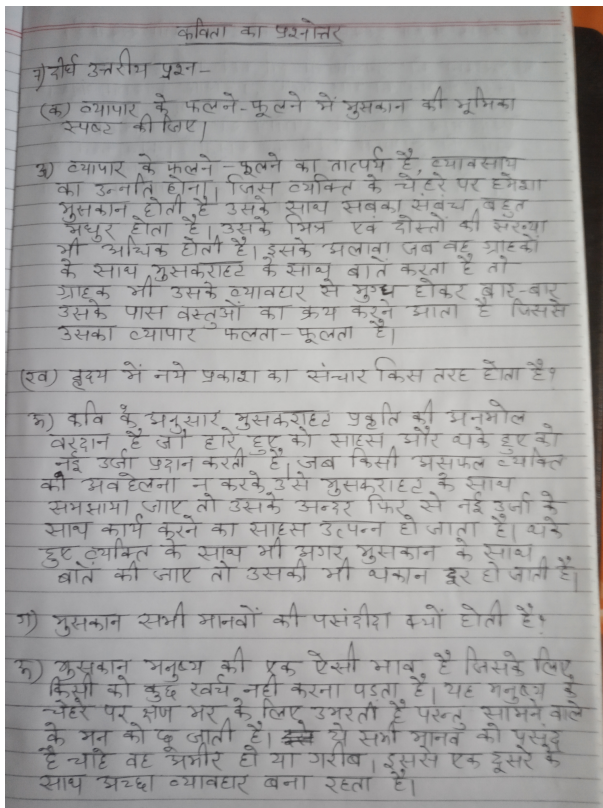 कविता का प्रश्नोत्तर
१) दीर्घ उत्तरीय प्रश्न-
(क) व्यापार के फलने-फूलने में मुसकान की भूमिका
स्पष्ट कीजिए।
उ) व्यापार के फलने-फूलने का तात्पर्य है, व्यावसाय
का उन्नति होना। जिस व्यक्ति के चेहरे पर हमेशा
मुसकान होती है उसके साथ सबका संबंध बहुत
मधुर होता है। उसके मित्र एवं दोस्तों की संख्या
भी अधिक होती है। इसके अलावा जब वह ग्राहकों
के साथ मुसकराहट के साथ बातें करता है तो
ग्राहक भी उसके व्यावहार से मुग्ध होकर बार-बार
उसके पास वस्तुओं का क्रय करने आता है जिससे
उसका व्यापार फलता-फूलता है।
(ख) हृदय में नये प्रकाश का संचार किस तरह होता है?
उ) कवि के अनुसार मुसकराहट प्रकृति की अनमोल
वरदान है जो हारे हुए को साहस और थके हुए को
नई उर्जा प्रदान करती है, जब किसी असफल व्यक्ति
की अवहेलना न करके उसे मुसकराहट के साथ
समझाया जाए तो उसके अन्दर फिर से नई उर्जा के
साथ कार्य करने का साहस उत्पन्न हो जाता है। थके
हुए व्यक्ति के साथ भी अगर मुसकान के साथ
बातें की जाए तो उसकी भी थकान दूर हो जाती है।
ग) मुसकान सभी मानवों की पसंदीदा क्यों होती है?
उ) मुसकान मनुष्य की एक ऐसी भाव है जिसके लिए
किसी को कुछ खर्च नही करना पड़ता है। यह मनुष्य के
चेहरे पर क्षण भर के लिए उभरती है परन्तु सामने वाले
के मन को छू जाती है। ये सभी मानव को पसंद
है चाहे वह अमीर हो या गरीब। इससे एक दूसरे के
साथ अच्छा व्यावहार बना रहता है।